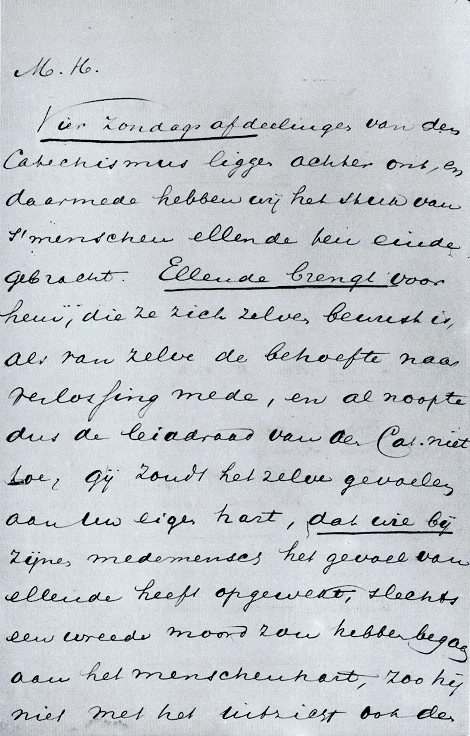 M. H.
Vier Zondagsafdeelingen van den
Catechismus liggen achter ons, en
daarmede hebben wij het stuk van
s'menschen ellende ten einde
gebracht. Ellende brengt voor
hem, die ze zich zelven bewust is,
als van zelve de behoefte naar
verlossing mede, en al noopte
dus de leiddraad van den Cat. niet
toe, gij zoudt hetzelve gevoelen
aan uw eigen hart, dat wie bij
zijnen medemensch het gevoel van
ellende heeft opgewekt, slechts
een wreede moord zou hebben begaan
aan het menschenhart, zoo hij
niet met het uitzicht ook de